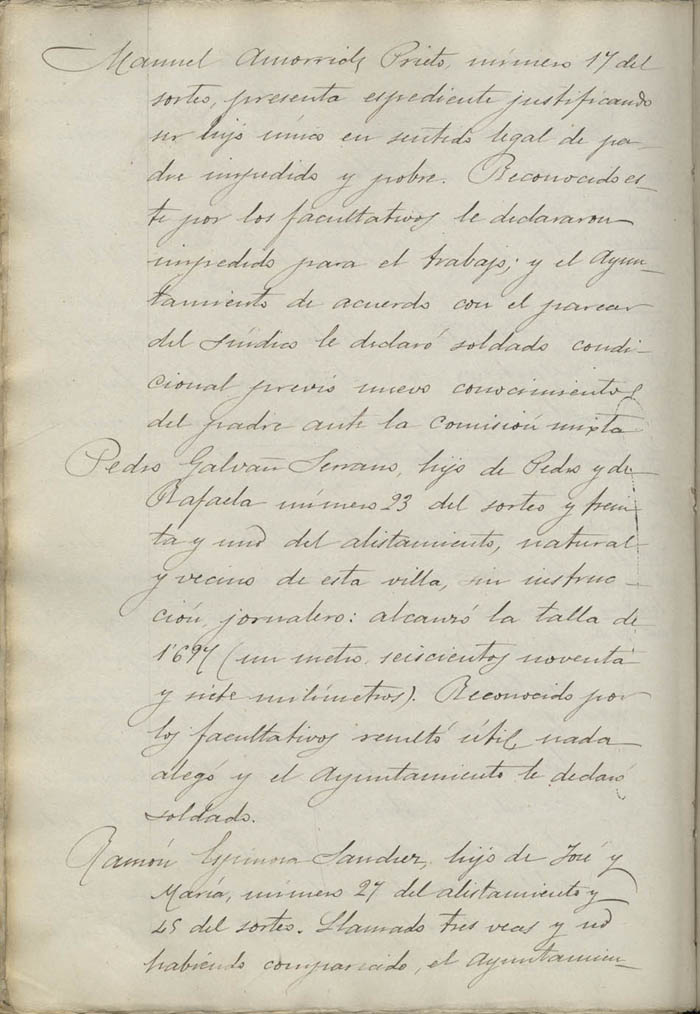 Manuel Amorrich Prieto, número 17 del
sorteo, presenta espediente justificando
ser hijo único en sentido legal de pa-
dre impedido y pobre. Reconocido es-
te por los facultativos le declararon
impedido para el trabajo; y el Ayun-
tamiento de acuerdo con el parecer
del Síndico le declaró soldado condi-
cional previo nuevo conocimiento
del padre ante la Comisión mixta
Pedro Galván Serrano, hijo de Pedro y de
Rafaela número 23 del sorteo y trein
ta y uno del alistamiento, natural
y vecino de esta villa, sin instruc-
ción, jornalero: alcanzó la talla de
1'697 (un metro seiscientos noventa
y siete milímetros). Reconocido por
los facultativos resultó útil, nada
alegó y el Ayuntamiento le declaró
soldado.
Ramón Espinosa Sanchez, hijo de José y
María, número 27 del alistamiento y
45 del sorteo. Llamado tres veces y no
habiendo comparecido, el Ayuntamien-